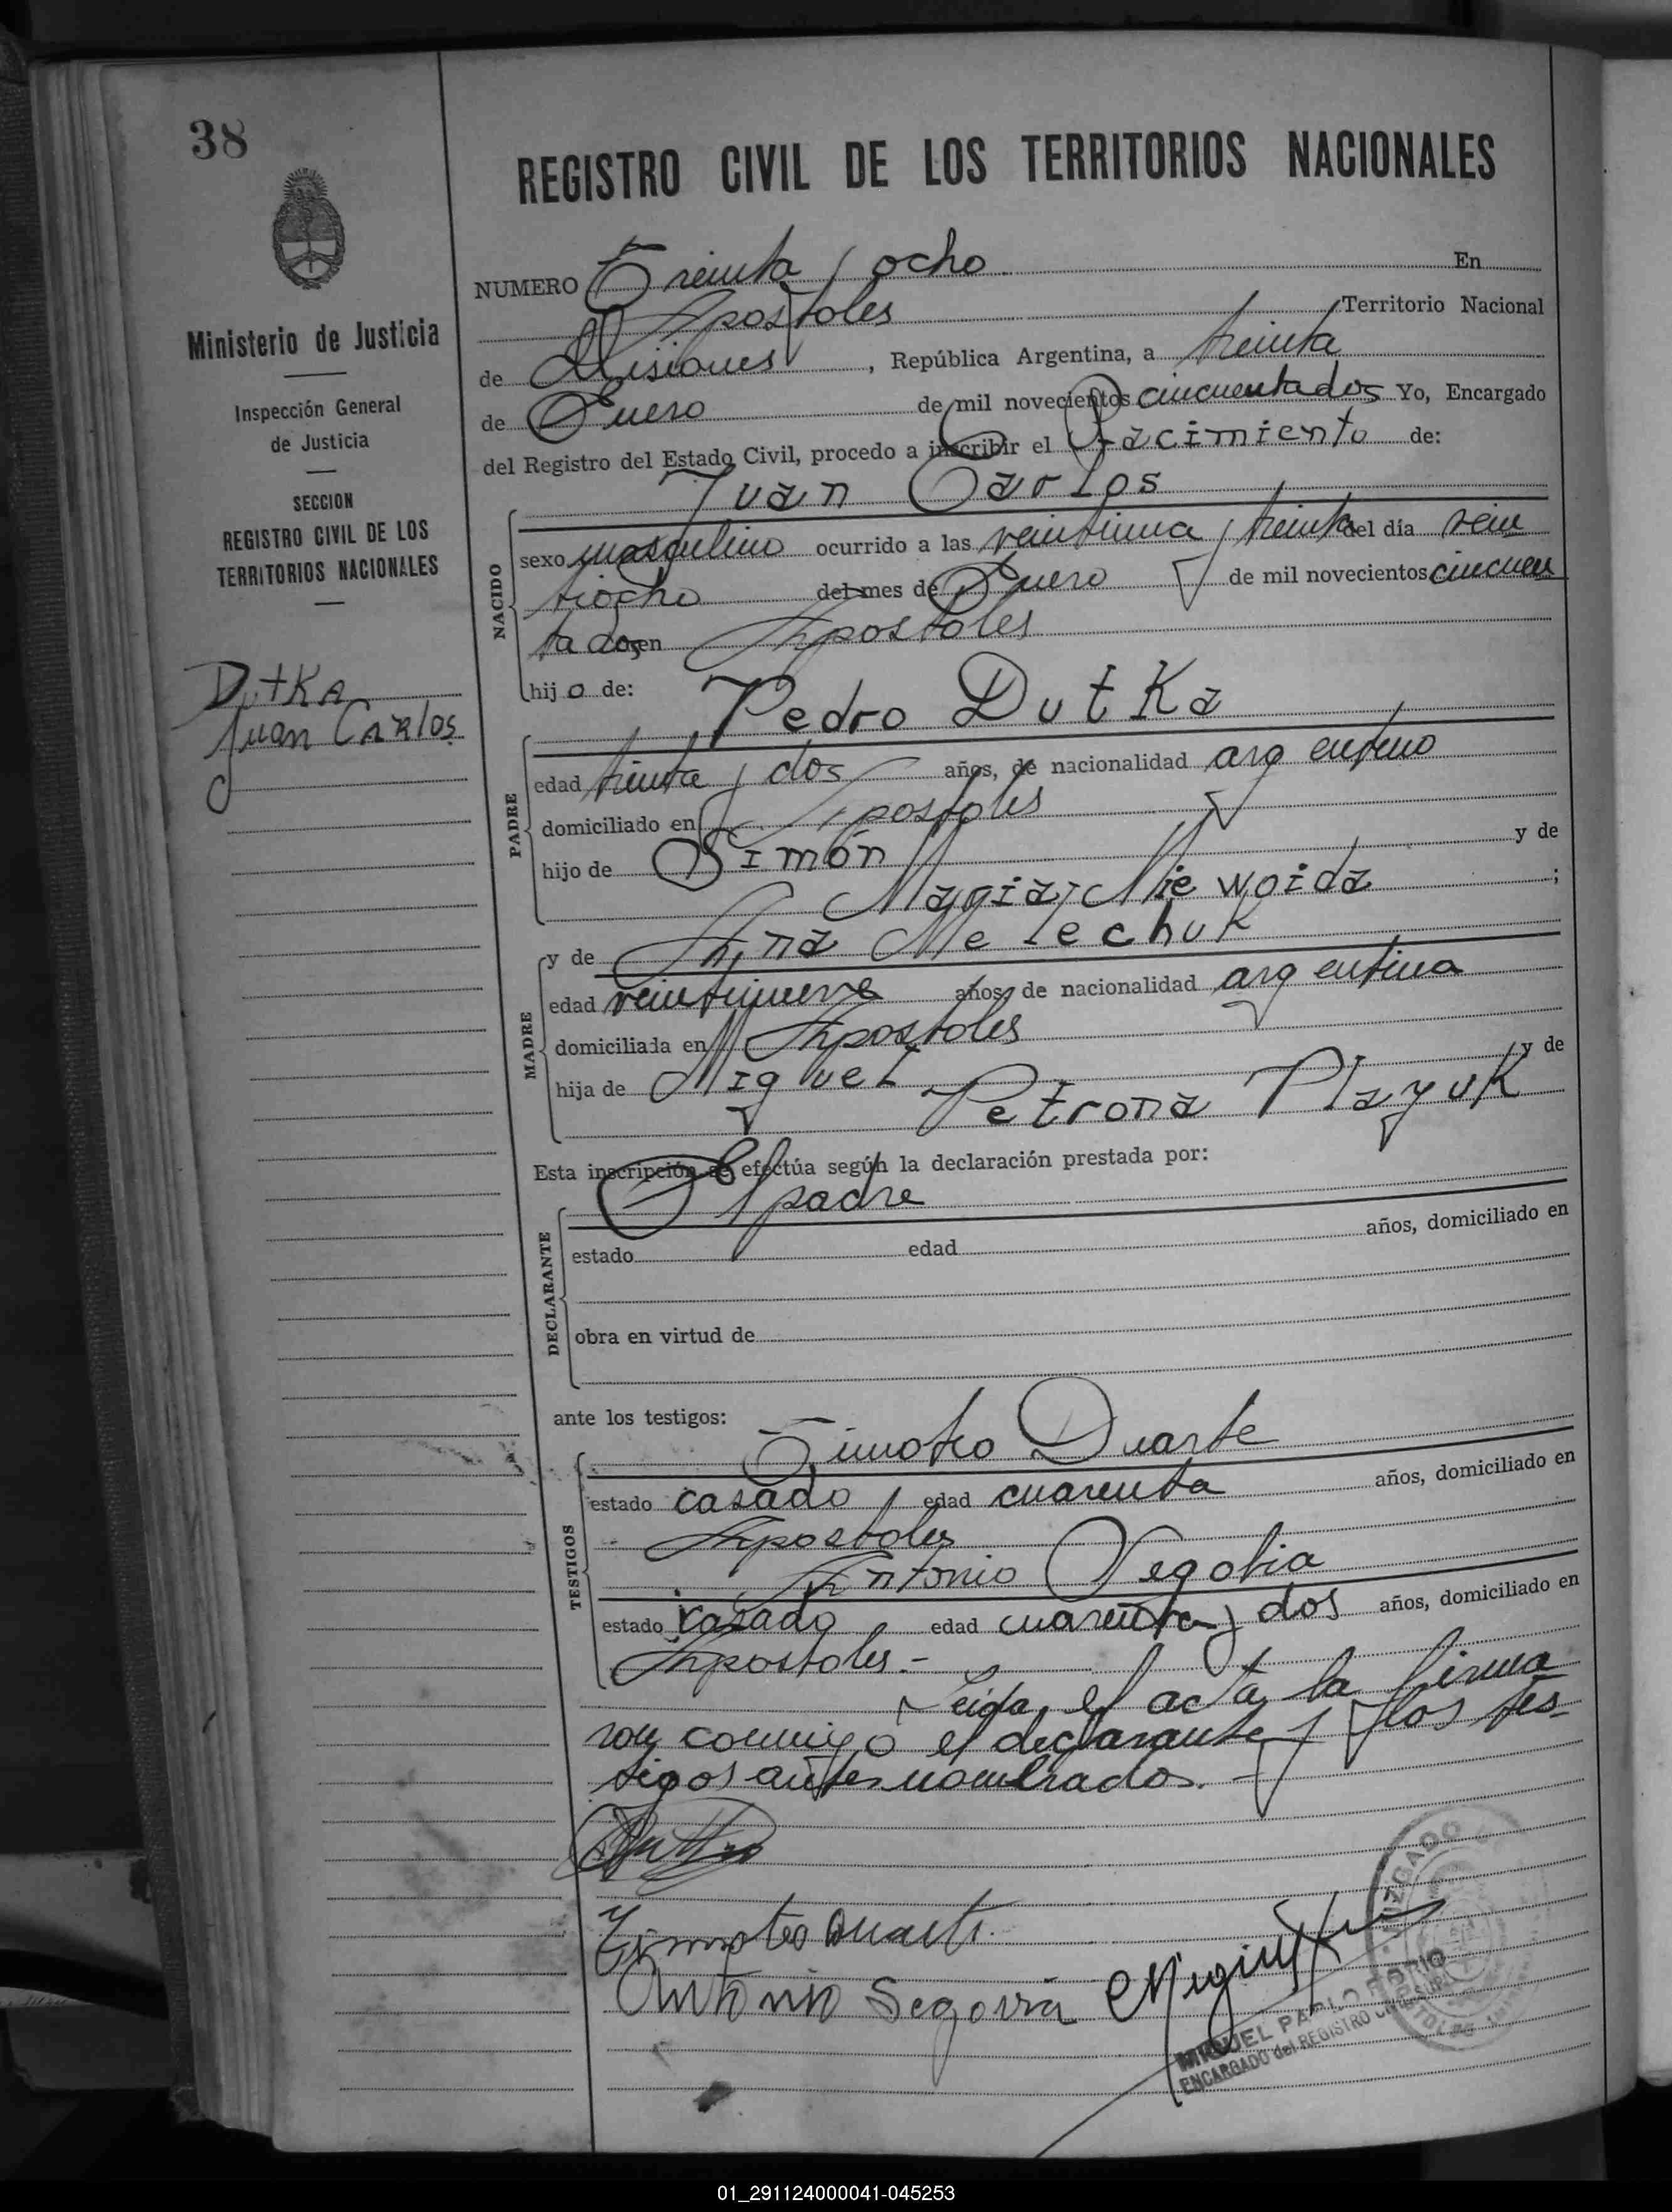 38
REGISTRO CIVIL DE LOS TERRITORIOS NACIONALES
Ministerio de Justicia
Inspección General
de Justicia
SECCION
REGISTRO CIVIL DE LOS
TERRITORIOS NACIONALES
Dutka
Juan Carlos
NUMERO Treinta y ocho En
Apostoles Territorio Nacional
de Misiones, República Argentina, a treinta
de Enero de mil novecientos cincuentados Yo, Encargado
del Registro del Estado Civil, procedo a inscribir el Nacimiento de:
Juan Carlos
NACIDO
sexo masculino ocurrido a las veintiuna y treinta del día vein
tiocho del mes de Enero de mil novecientos cincuen
ta dos en Apostoles
hijo de: Pedro Dutka
PADRE
edad treinta y dos años, de nacionalidad argentino
domiciliado en Apostoles
hijo de Simón y de
María Niewoida ;
MADRE
y de Ana Melechuk
edad veintinueve años, de nacionalidad argentina
domiciliada en Apostoles
hija de Miguel y de
Petrona Plazuk
Esta inscripción se efectúa según la declaración prestada por:
El padre
DECLARANTE
estado edad años, domiciliado en
obra en virtud de
ante los testigos:
Timoteo Duarte
TESTIGOS
estado casado edad cuarenta años, domiciliado en
Apostoles
Antonio Segobia
estado casado edad cuarenta y dos años, domiciliado en
Apostoles.-
Leída el acta, la firma
ron conmigo el declarante y los tes-
tigos antes nombrados.-
Timoteo Duarte
Antonio Segovia
JUZGADO
MIGUEL PABLO FIORIO
ENCARGADO del REGISTRO CIVIL
01_291124000041-045253